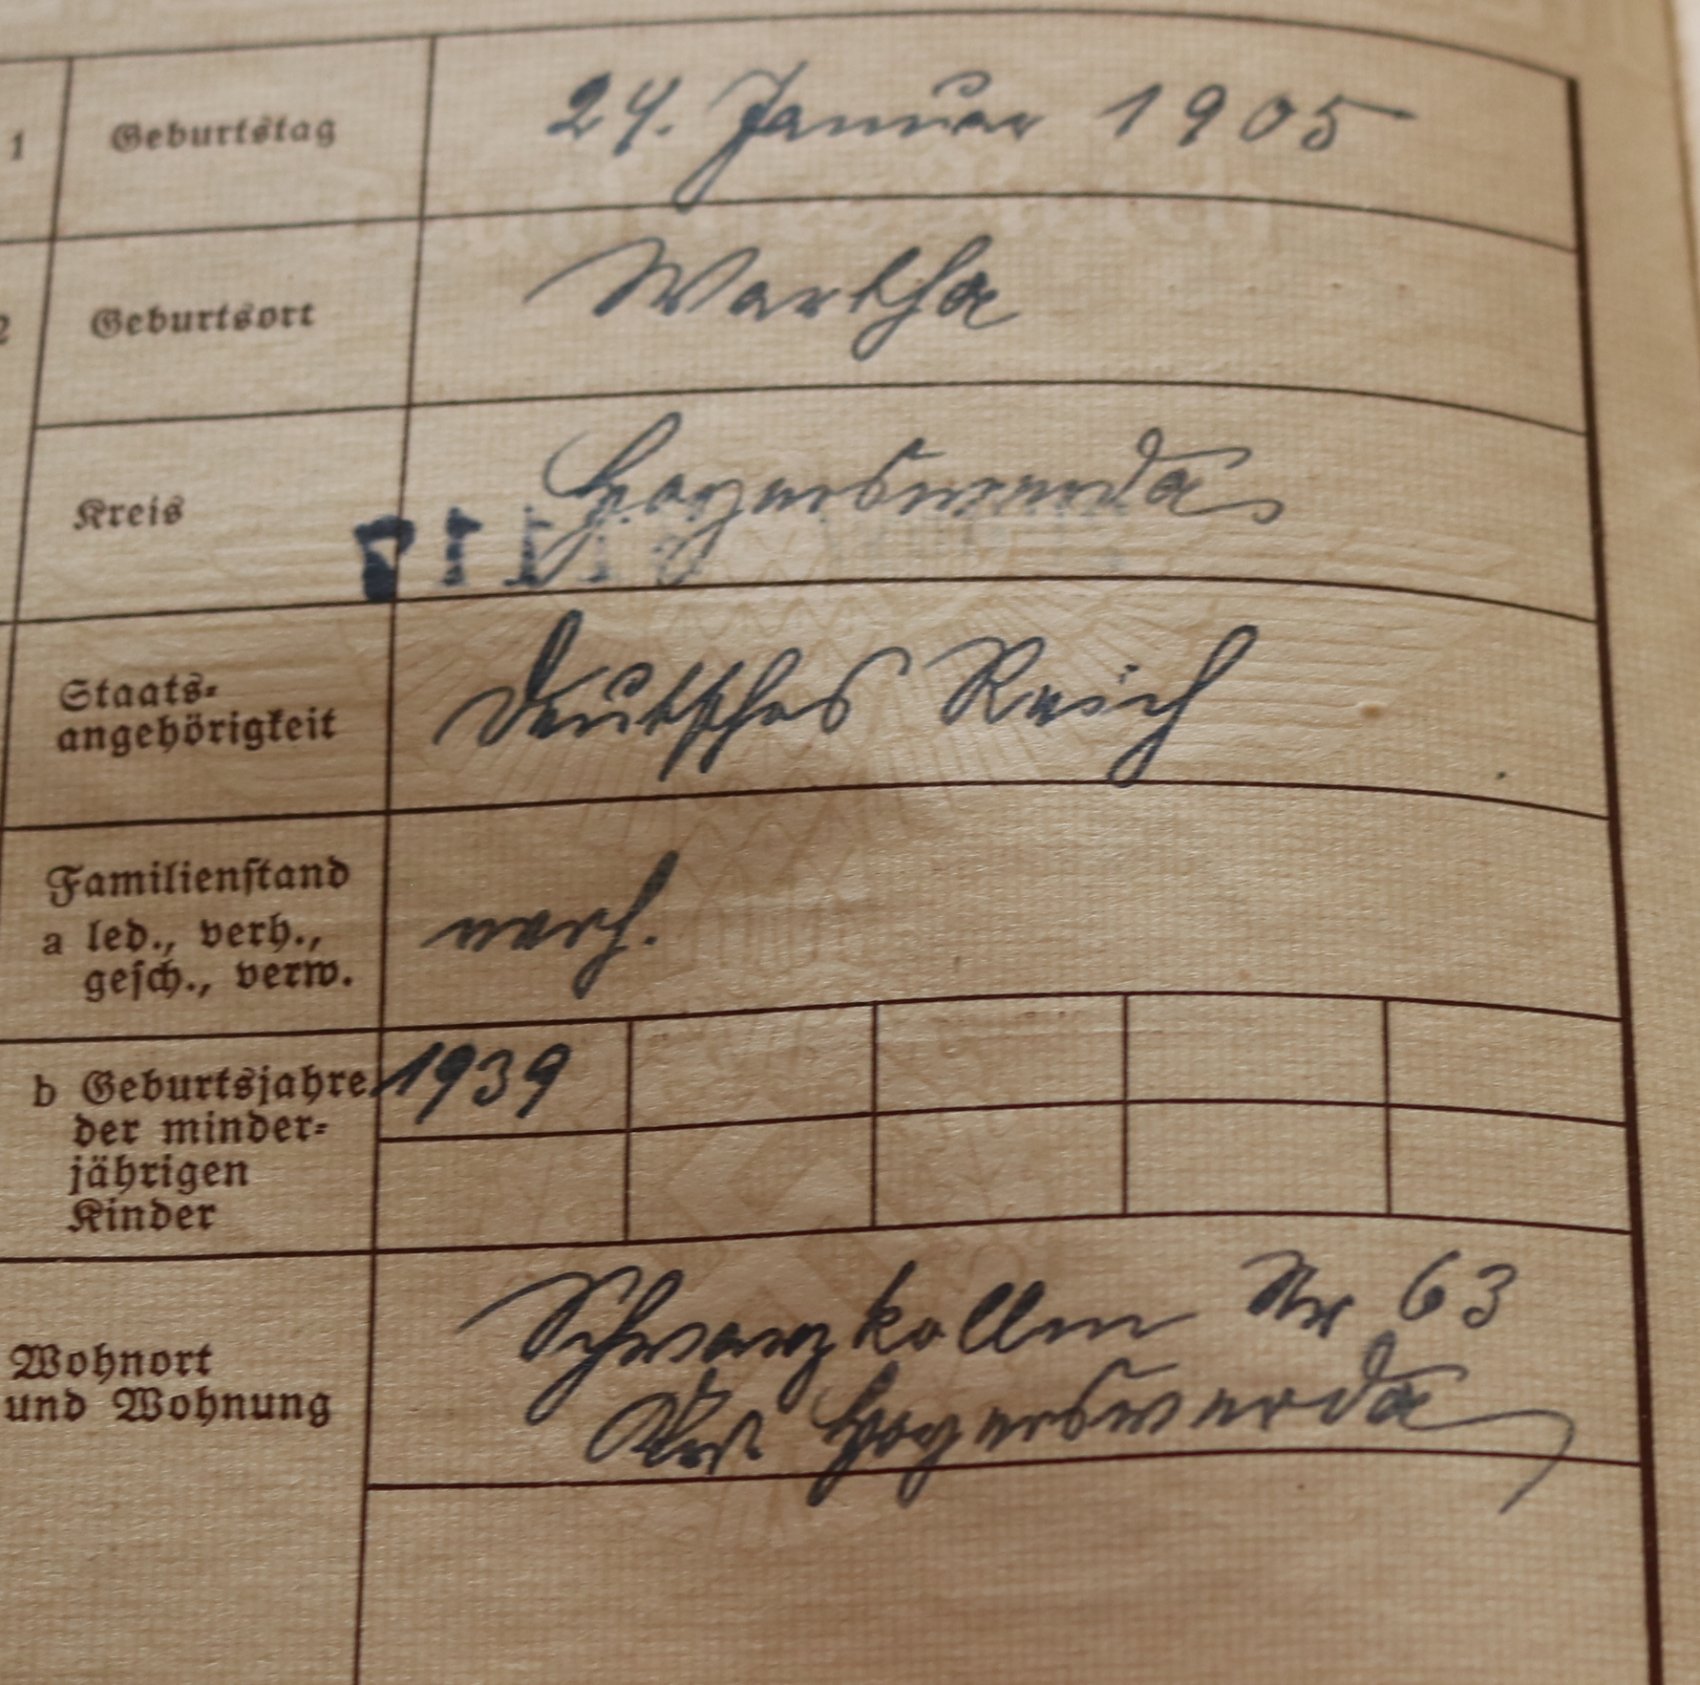 1 Geburtstag 24. Januar 1905
2 Geburtsort Wartha
Kreis Hoyerswerda
Staats-
angehörigkeit Deutsches Reich
Familienstand
a led., verh., verh.
gesch., verw.
b Geburtsjahre 1939
der minder-
jährigen
Kinder
Schwarzkollm Nr 63
Wohnort
und Wohnung Krs. Hoyerswerda